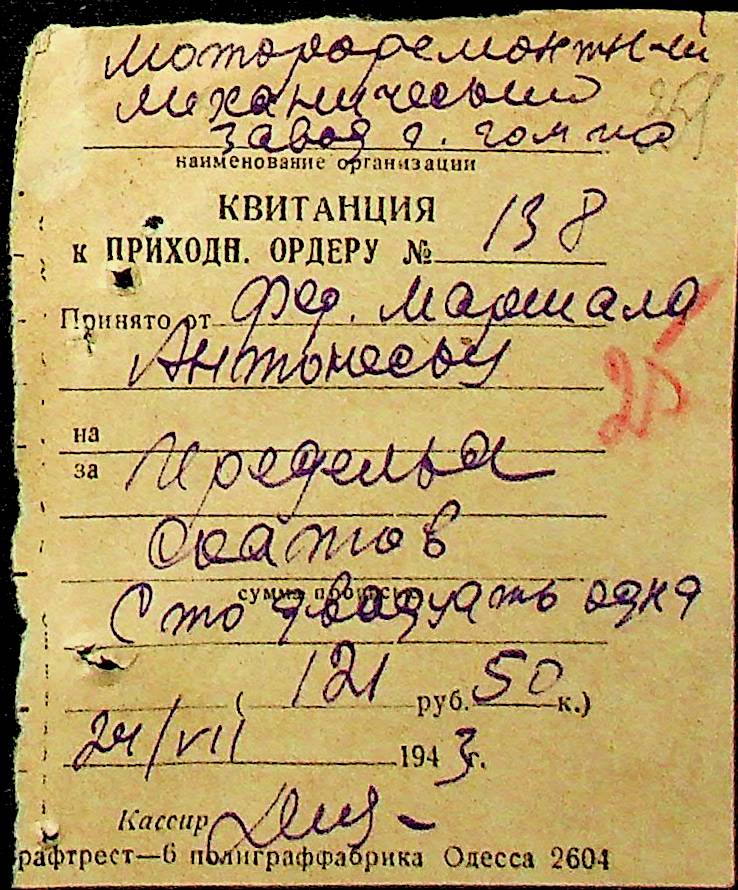 Мотороремонтн-й
механический
завод г.
259
наименование организации
КВИТАНЦИЯ
к ПРИХОДН. ОРДЕРУ № 138
Принято от фед. Маршала
Антонеску
25
на
за Переделка
скатов
сумма прописью
Сто двадцать одна
( 121 руб. 50 к.)
24/VII 1943г.
Кассир
рафтрест—6 полиграффабрика Одесса 2604